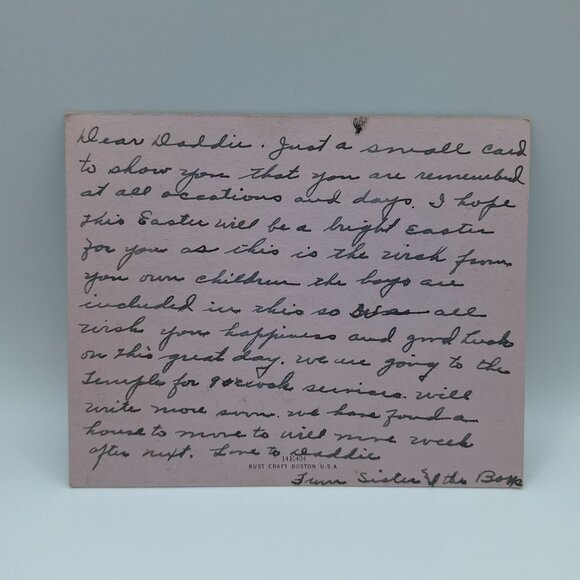 Dear Daddie. Just a small card
to show you that you are remembered
at all occations and days. I hope
this Easter will be a bright Easter
for you as this is the wish from
you own children the boys are
included in this so all
wish you happiness and good luck
on this great day. we are going to the
Temple for 9 oclock services. will
write more soon. we have found a
house to move to will move week
after next. Love to Daddie
14E404
RUST CRAFT BOSTON U.S.A
From Sister & the Boys